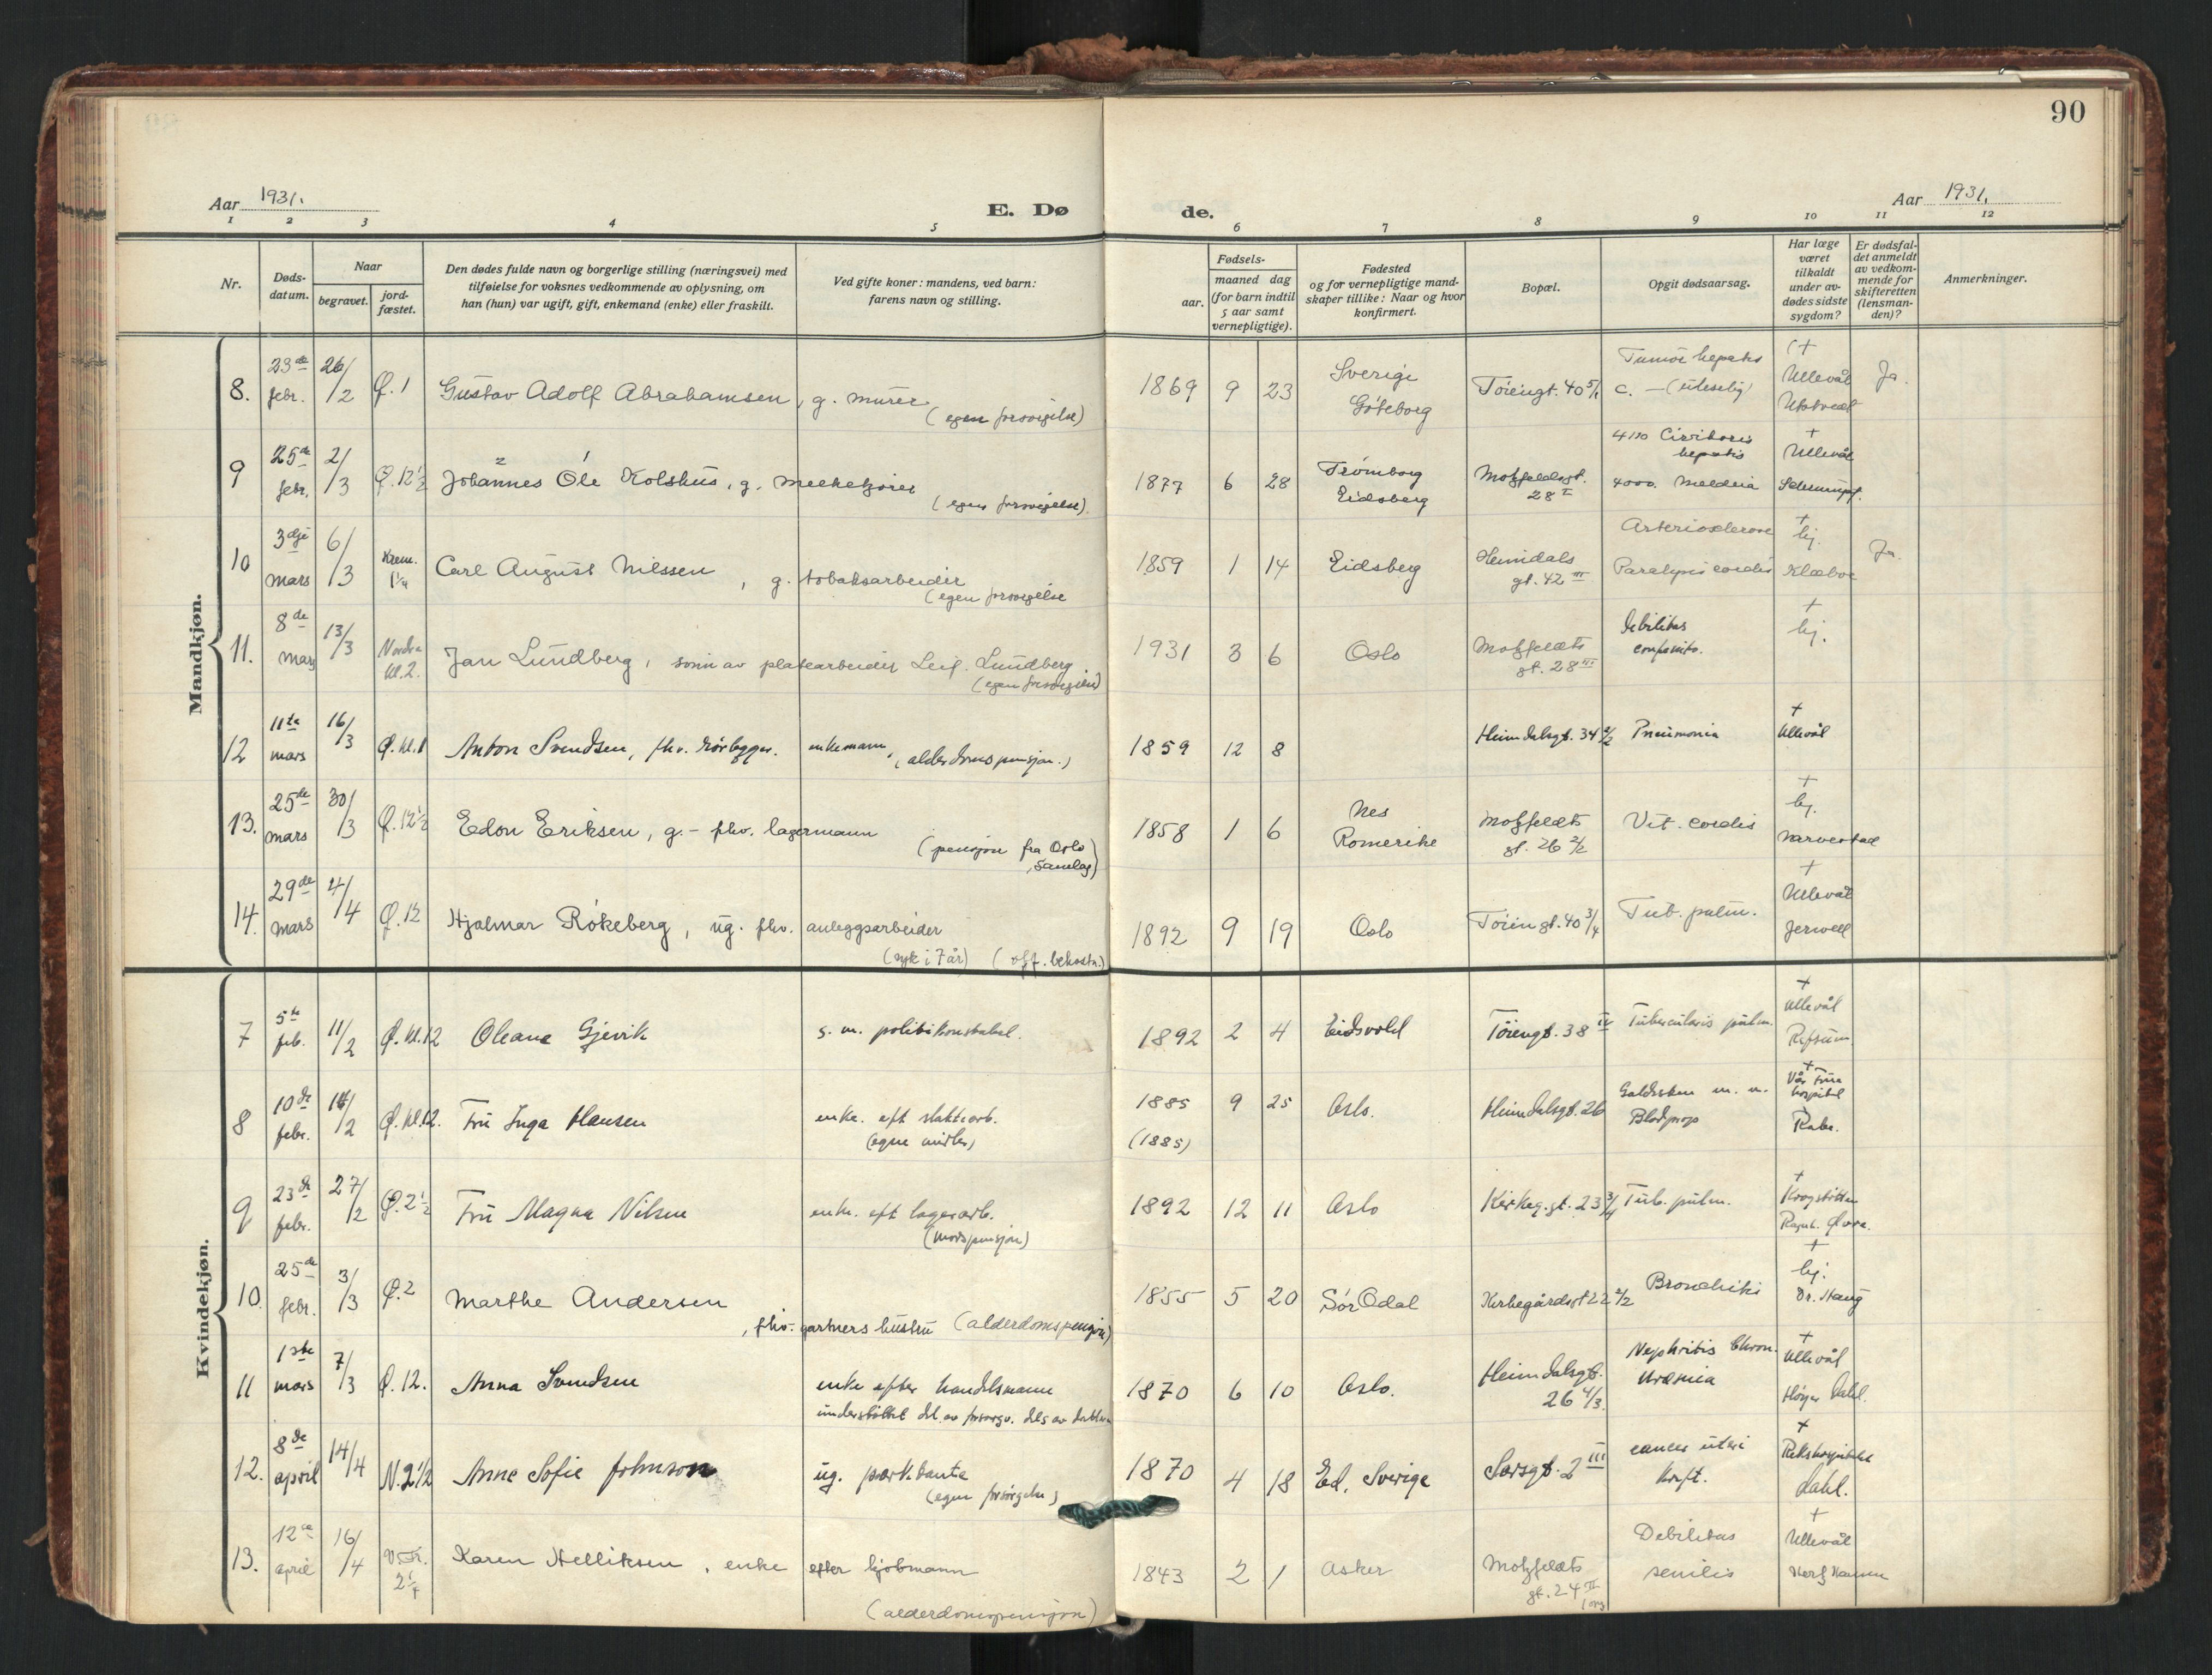 90
Aar 1931.
E. Dø de.
Aar 1931.
1 2 3 4 5 6 7 8 9 10 11 12
Nr.
Døds-
datum.
Naar
begravet.
jord-
fæstet.
Den dødes fulde navn og borgerlige stilling (næringsvei) med
tilføielse for voksnes vedkommende av oplysning, om
han (hun) var ugift, gift, enkemand (enke) eller fraskilt.
Ved gifte koner: mandens, ved barn:
farens navn og stilling.
Fødsels-
aar.
maaned dag
(for barn indtil
5 aar samt
vernepligtige).
Fødested
og for vernepligtige mand-
skaper tillike: Naar og hvor
konfirmert.
Bopæl.
Opgit dødsaarsag.
Har læge
været
tilkaldt
under av-
dødes sidste
sygdom?
Er dødsfal-
det anmeldt
av vedkom-
mende for
skifteretten
(lensman-
den)?
Anmerkninger.
Mandkjøn.
8. 23de febr. 26/2 Ø. 1 Gustav Adolf Abrahamsen, g. murer
(egen forsørgelse)
1869 9 23 Sverige
Göteborg
Tøiengt. 40 5/1
Tumor hepatis
c. —
+
Ullevål
Ja.
9 25de febr. 2/3 Ø. 12½ Johannes Ole Kolshus, g. melkekjører
(egen forsørgelse)
1877 6 28 Trømborg
Eidsberg
Motzfeldtsgt.
28 II
Cirrhosis
hepatis
4000.
+
Ullevål
10 3dje mars 6/3 Krem. 1¼ Carl August Nilssen, g. tobaksarbeider
(egen forsørgelse
1859 1 14 Eidsberg
Heimdals
gt. 42 III
Arteriosclerose
Paralysis cordis
+
hj.
Klæboe
Ja.
11. 8de mars 13/3 Nordre kl. 2. Jan Lundberg, sønn av platearbeider Leif Lundberg
(egen forsørgelse)
1931 3 6 Oslo
Motzfeldts
gt. 28 III
Debilitas
congenita.
+
hj.
12 11te mars 16/3 Ø. kl. 1 Anton Svendsen, fhv. rørlegger. enkemann, (alderdomspensjon.)
1859 12 8
Heimdalsgt. 34 2/2
Pneumonia
+
Ullevål
13. 25de mars 30/3 Ø. 12½ Edon Eriksen, g. - fhv. lagermann
(pensjon fra Oslo
Samlag)
1858 1 6 Nes
Romerike
Motzfeldts
gt. 26 2/2
Vit. cordis
+
hj.
Narvestad
14. 29de mars 4/4 Ø. 12 Hjalmar Rökeberg, ug. fhv. anleggsarbeider
(syk i 7 år) (off. bekostn.)
1892 9 19 Oslo
Tøiengt. 40 3/4
Tub. pulm.
+
Ullevål
Jerwell
Kvindekjøn.
7 5te feb. 11/2 Ø. kl. 12 Oleane Gjevik
g. m. politikonstabel.
1892 2 4 Eidsvold
Tøiengt. 38 IV
Tuberculosis pulm.
+
Ullevål
Refsum
8 10de febr. 14/2 Ø. kl. 12. Fru Inga Hansen
enke. eft slaktearb.
(egne midler)
1885 9 25 Oslo.
(1885)
Heimdalsgt. 26
Galdesten m. m.
Blodprop
+
Vår Frue
hospital
Rabe.
9 23de febr. 27/2 Ø. 2½ Fru Magna Nilsen
enke. eft lagerarb.
(morspensjon)
1892 12 11 Oslo
Kirkeg. gt. 23 3/4
Tub. pulm.
+
Krogstøtten
10. 25de febr. 3/3 Ø. 2 Marthe Andersen
, fhv. gartners hustru (alderdomspensjon)
1855 5 20 Sør Odal
Kirkegårdsgt 22 2/2
Bronchitis
+
hj.
Dr. Haug
11 1ste mars 7/3 Ø. 12. Anna Svendsen
enke efter handelsmann
understøttet del. av forsorgv. dels av
1870 6 10 Oslo.
Heimdalsgt.
26 4/3.
Nephritis Chron.
Uræmia
+
Ullevål
Høyer Dahl.
12. 8de april 14/4 N. 2½ Anne Sofie Johnson
ug. parktante
(egen forsørgelse)
1870 4 18 Ed, Sverige
Sarsgt. 2 III
cancer uteri
kreft.
+
Rikshospitalet
Dahl.
13. 12te april 16/4 V. Fr. 2¼ Karen Helliksen, enke efter kjøbmann
(alderdomspensjon)
1843 2 1 Asker
Motzfeldts
gt. 24 III
Debilitas
senilis
+
Ullevål